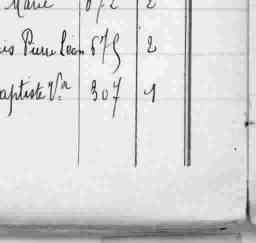 Marie 672 2
is Pierre Léon 675 2
aptiste Vr 307 1